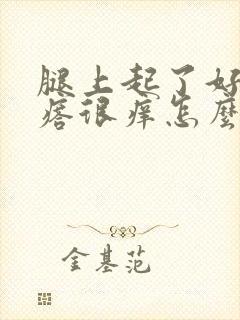 腿上起了好
痞很痒怎麼
金基范